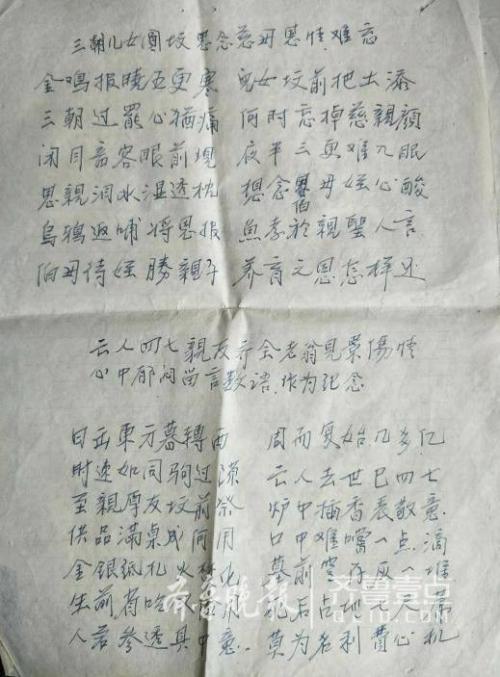 三朝儿女圆坟思念慈母恩情难忘
金鸣报晓五更寒 儿女坟前把土添
三朝过罢心犹痛 何时忘掉慈亲颜
闭目音容眼前现 夜半三更难入眠
思亲泪水湿透枕 想念伯母姪心酸
乌鸦返哺将恩报 孝於親聖人言
伯母待姪勝親子 养育之恩怎样还
亡人四七親友齐会老翁見景傷情
心中郁闷留言数语作为纪念
日出東方暮轉西 周而复始几多亿
时速如同驹过隙 亡人去世已四七
至親厚友坟前祭 炉中插香表敬意
供品满桌成何用 口中难嚐一点滴
金銀纸札火焚化 墓前空存灰一堆
生前 死后占地七尺
人若参透其中意 莫为名利費心机
齐鲁晚报 齐鲁壹点